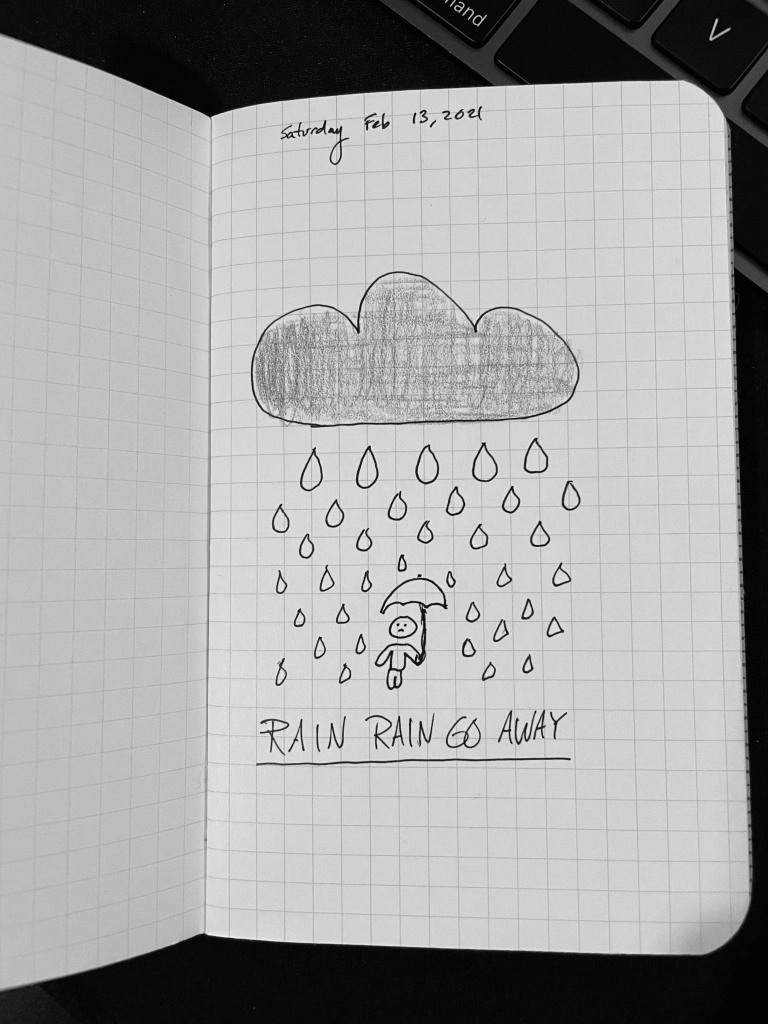 and
V
Saturday Feb 13, 2021
RAIN RAIN GO AWAY